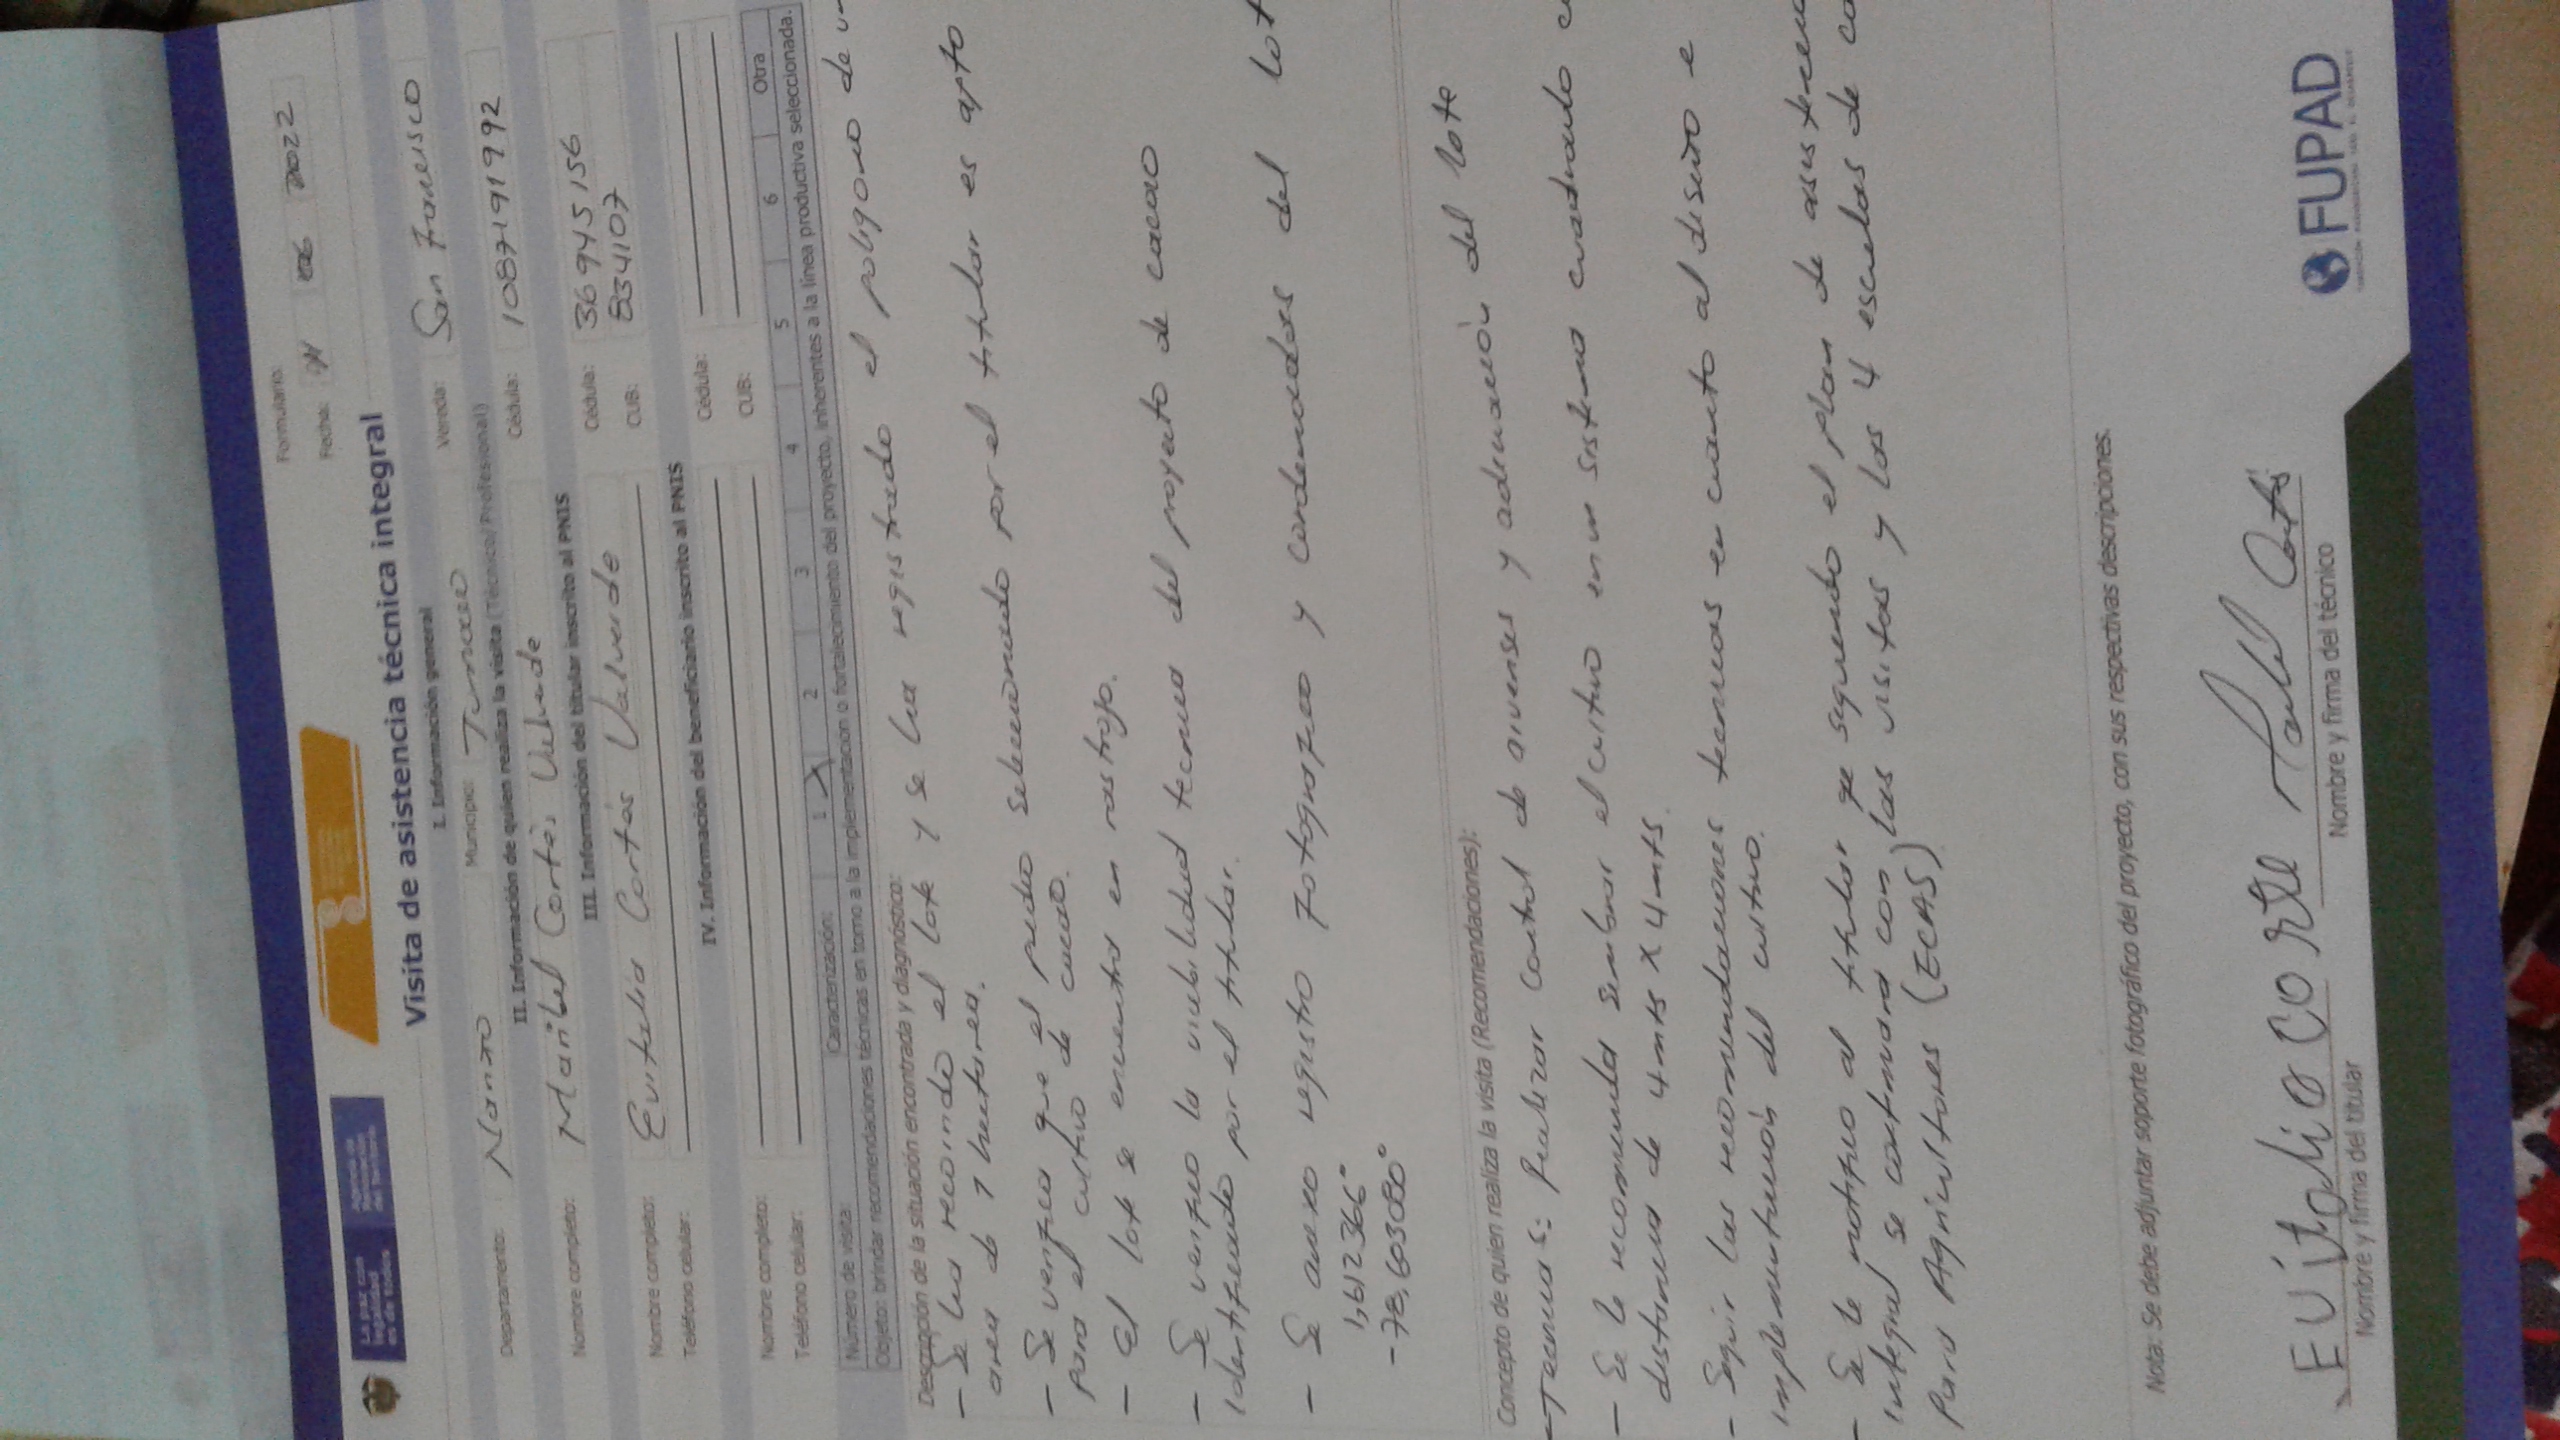 La paz con
legalidad
es de todos
Agencia de
Renovación
del Territorio
Formulario:
Fecha: 06 2022
Visita de asistencia técnica integral
I. Información general
Departamento: Nariño Municipio: Tumaco Vereda: San Francisco
II. Información de quien realiza la visita (Técnico/Profesional)
Nombre completo: Maribel Cortès Valverde Cédula: 1087191992
III. Información del titular inscrito al PNIS
Nombre completo: Evitalia Cortés Valverde Cédula: 36945156
Teléfono celular: CUB: 834107
IV. Información del beneficiario inscrito al PNIS
Nombre completo: Cédula:
Teléfono celular: CUB:
Número de visita: Caracterización: 1 X 2 3 4 5 6 Otra
Objeto: brindar recomendaciones técnicas en torno a la implementación o fortalecimiento del proyecto, inherentes a la línea productiva seleccionada.
Descripción de la situación encontrada y diagnóstico:
- Se ha recorrido el lote y se ha registrado el poligono de
area de 1 hectarea.
- Se verifica que el predio seleccionado por el titular es apto
para el cultivo de cacao.
- El lote se encuentra en rastrojo.
- Se verifico la viabilidad tecnica del proyecto de cacao
identificado por el titular.
- Se anexo registro fotografico y cordenadas del lot
1,612366°
-78,603080°
Concepto de quien realiza la visita (Recomendaciones):
Tecnicas: Realizar control de arvenses y adecuación del lote
- Se le recomienda sembrar el cultivo en un sistema cuadrado
distancia de 4mts x 4mts.
- Seguir las recomendaciones tecnicas en cuanto al diseño e
implementación del cultivo.
- Se le notifico al titular que siguiendo el plan de asistencia
integral se continuara con las visitas y las 4 escuelas de ca
Para Agricultores (ECAS)
Nota: Se debe adjuntar soporte fotográfico del proyecto, con sus respectivas descripciones.
EVitaliO CORTE
Nombre y firma del titular
Maribel Cortés
Nombre y firma del técnico
FUPAD